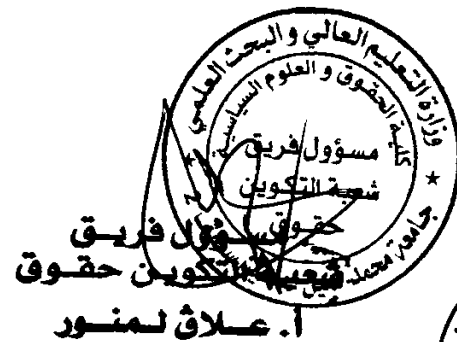 وزارة التعليم العالي و البحث العلمي
كلية الحقوق و العلوم السياسية
جامعة محمد
مسؤول فريق
شعبة التكوين
حقوق
مسؤول فريق
شعبة التكوين حقوق
أ. عــلاق لـمنــور